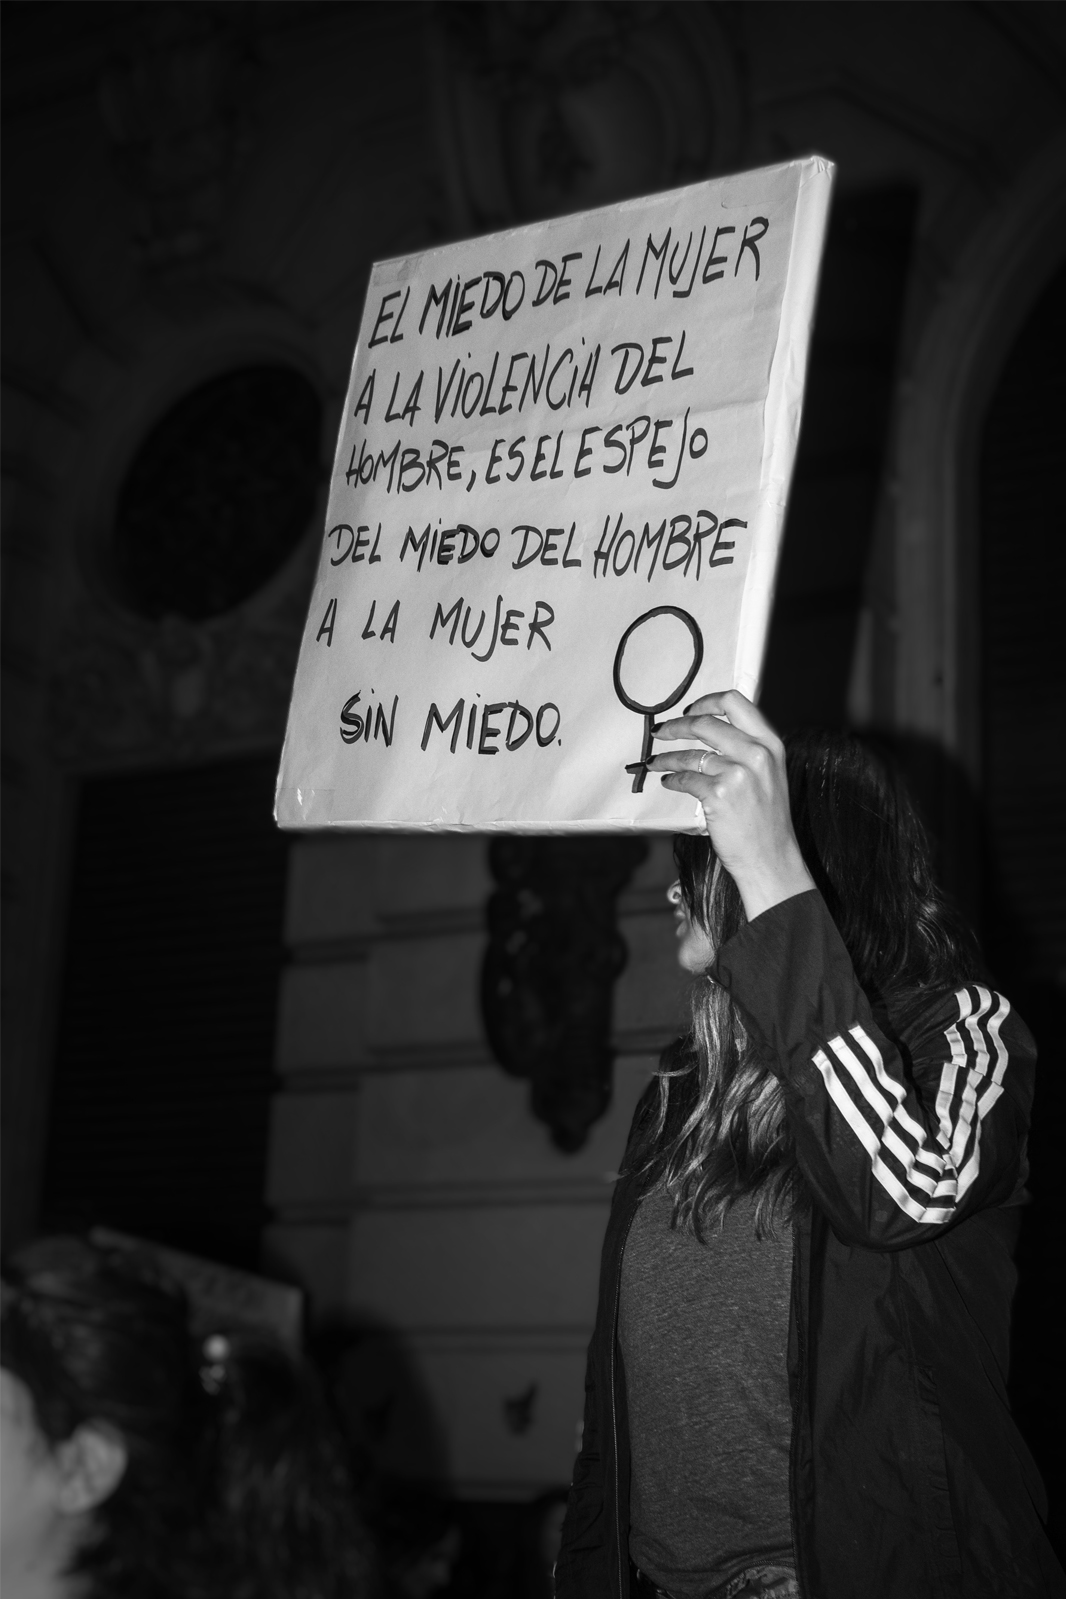 EL MIEDO DE LA MUJER
A LA VIOLENCIA DEL
HOMBRE, ES EL ESPEJO
DEL MIEDO DEL HOMBRE
A LA MUJER
SIN MIEDO.